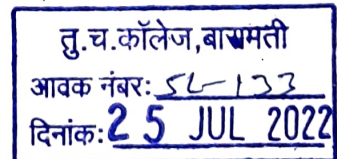 तु.च.कॉलेज,बारामती
आवक नंबर: SL-133
दिनांक: 25 JUL 2022